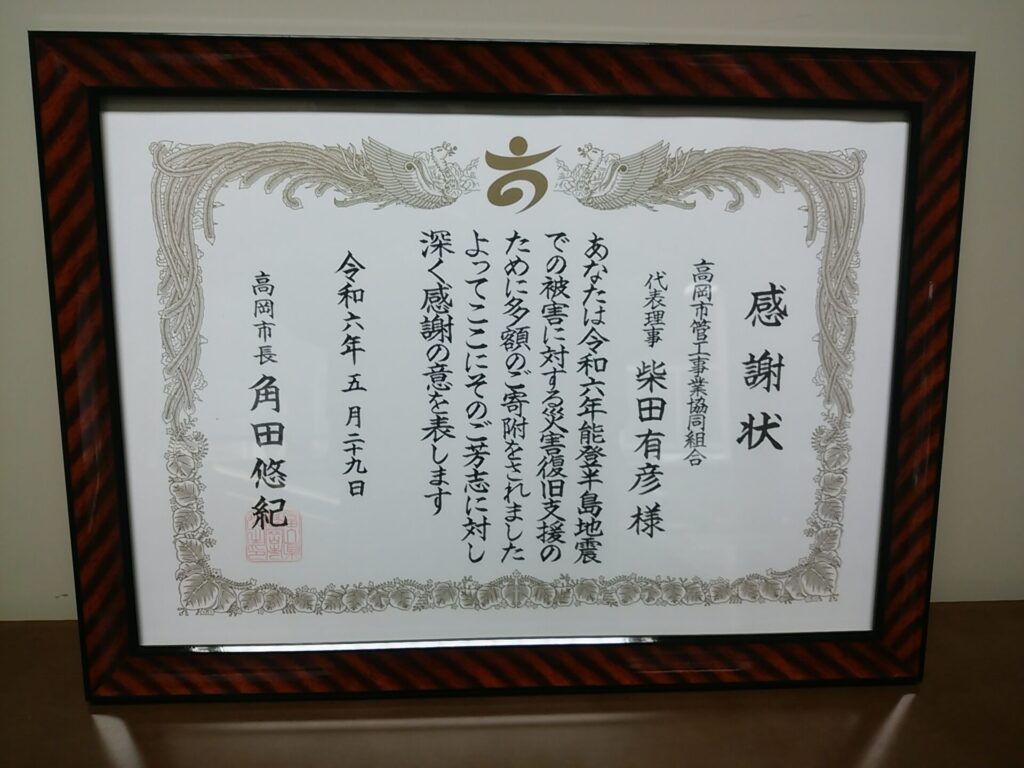 感謝状
高岡市管工事業協同組合
代表理事 柴田有彦様
あなたは令和六年能登半島地震
での被害に対する災害復旧支援の
ために多額のご寄附をされました
よってここにそのご芳志に対し
深く感謝の意を表します
令和六年五月二十九日
高岡市長 角田悠紀